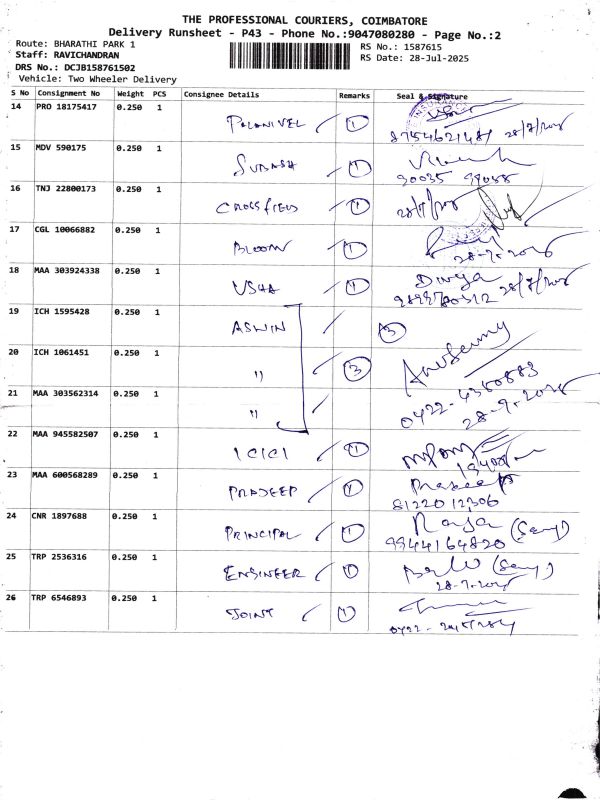 THE PROFESSIONAL COURIERS, COIMBATORE
Delivery Runsheet - P43 - Phone No.:9047080280 - Page No.:2
Route: BHARATHI PARK 1
RS No.: 1587615
Staff: RAVICHANDRAN
RS Date: 28-Jul-2025
DRS No.: DCJB158761502
Vehicle: Two Wheeler Delivery
S No Consignment No Weight PCS Consignee Details Remarks Seal & Signature
14 PRO 18175417 0.250 1 PALANIVEL 1
8754621481
15 MDV 590175 0.250 1 1
90035
16 TNJ 22800173 0.250 1 CROSSFIELD 1
17 CGL 10066882 0.250 1 BLOOM 1
18 MAA 303924338 0.250 1 USHA 1 Divya
19 ICH 1595428 0.250 1 ASWIN 3
20 ICH 1061451 0.250 1 " 3
21 MAA 303562314 0.250 1 "
0422-4380883
22 MAA 945582507 0.250 1 ICICI 1
23 MAA 600568289 0.250 1 PRADEEP 1 Pradeep
81220 12306
24 CNR 1897688 0.250 1 PRINCIPAL 1
9944164820
25 TRP 2536316 0.250 1 ENGINEER 1
26 TRP 6546893 0.250 1 JOINT 1
0422-